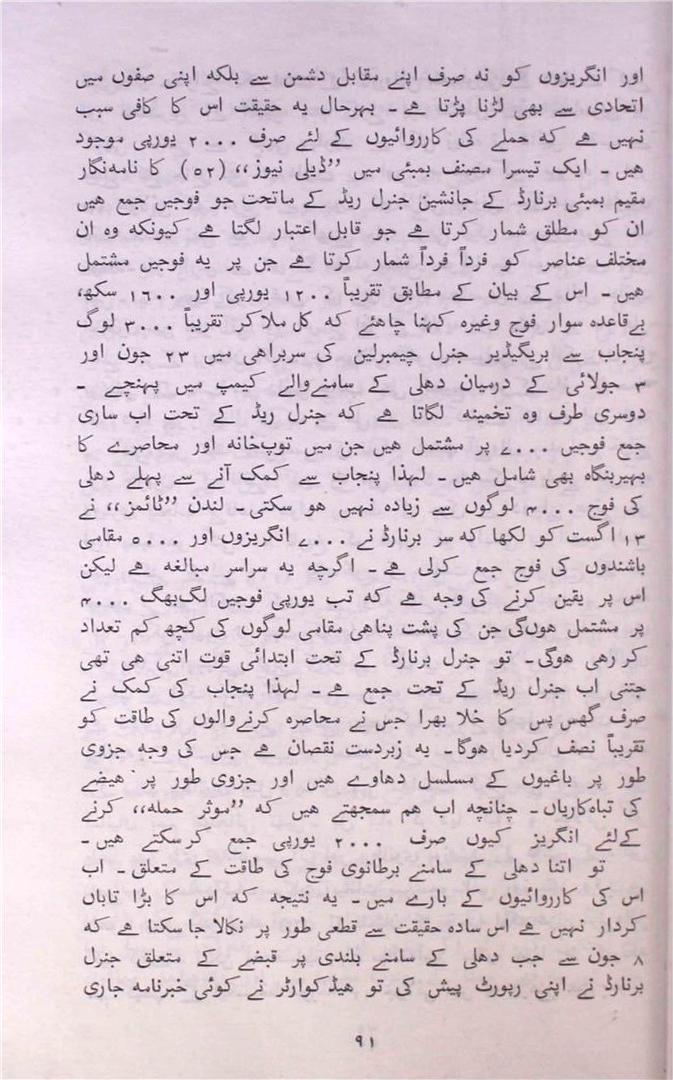 اور انگریزوں کو نہ صرف اپنے مقابل دشمن سے بلکہ اپنی صفوں میں
اتحادی سے بھی لڑنا پڑتا ہے ۔ بہرحال یہ حقیقت اس کا کافی سبب
نہیں ہے کہ حملے کی کارروائیوں کے لئے صرف ۲۰۰۰ یورپی موجود
ہیں ۔ ایک تیسرا مصنف بمبئی میں ”ڈیلی نیوز،، (۵۲) کا نامہ نگار
مقیم بمبئی برنارڈ کے جانشین جنرل ریڈ کے ماتحت جو فوجیں جمع ہیں
ان کو مطلق شمار کرتا ہے جو قابل اعتبار لگتا ہے کیونکہ وہ ان
مختلف عناصر کو فرداً فرداً شمار کرتا ہے جن پر یہ فوجیں مشتمل
ہیں ۔ اس کے بیان کے مطابق تقریباً ۱۲۰۰ یورپی اور ۱۶۰۰ سکھ،
بےقاعدہ سوار فوج وغیرہ کہنا چاہئے کہ کل ملاکر تقریباً ۳۰۰۰ لوگ
پنجاب سے بریگیڈیر جنرل چیمبرلین کی سربراہی میں ۲۳ جون اور
۳ جولائی کے درمیان دہلی کے سامنےوالے کیمپ میں پہنچے ۔
دوسری طرف وہ تخمینہ لگاتا ہے کہ جنرل ریڈ کے تحت اب ساری
جمع فوجیں ۷۰۰۰ پر مشتمل ہیں جن میں توپ‌خانہ اور محاصرے کا
بہیربنگاہ بھی شامل ہیں ۔ لہذا پنجاب سے کمک آنے سے پہلے دہلی
کی فوج ۴۰۰۰ لوگوں سے زیادہ نہیں ہو سکتی ۔ لندن ”ٹائمز،، نے
۱۳ اگست کو لکھا کہ سر برنارڈ نے ۷۰۰۰ انگریزوں اور ۵۰۰۰ مقامی
باشندوں کی فوج جمع کرلی ہے ۔ اگرچہ یہ سراسر مبالغہ ہے لیکن
اس پر یقین کرنے کی وجہ ہے کہ تب یورپی فوجیں لگ‌بھگ ۴۰۰۰
پر مشتمل ہوں‌گی جن کی پشت پناہی مقامی لوگوں کی کچھ کم تعداد
کر رہی ہوگی ۔ تو جنرل برنارڈ کے تحت ابتدائی قوت اتنی ہی تھی
جتنی اب جنرل ریڈ کے تحت جمع ہے ۔ لہذا پنجاب کی کمک نے
صرف گھس پس کا خلا بھرا جس نے محاصرہ کرنےوالوں کی طاقت کو
تقریباً نصف کردیا ہوگا ۔ یہ زبردست نقصان ہے جس کی وجہ جزوی
طور پر باغیوں کے مسلسل دھاوے ہیں اور جزوی طور پر ہیضے
کی تباہ‌کاریاں ۔ چنانچہ اب ہم سمجھتے ہیں کہ ”موثر حملہ،، کرنے
کےلئے انگریز کیوں صرف ۲۰۰۰ یورپی جمع کرسکتے ہیں ۔
تو اتنا دہلی کے سامنے برطانوی فوج کی طاقت کے متعلق ۔ اب
اس کی کارروائیوں کے بارے میں ۔ یہ نتیجہ کہ اس کا بڑا تاباں
کردار نہیں ہے اس سادہ حقیقت سے قطعی طور پر نکالا جا سکتا ہے کہ
۸ جون سے جب دہلی کے سامنے بلندی پر قبضے کے متعلق جنرل
برنارڈ نے اپنی رپورٹ پیش کی تو ہیڈکوارٹر نے کوئی خبرنامہ جاری
۹۱